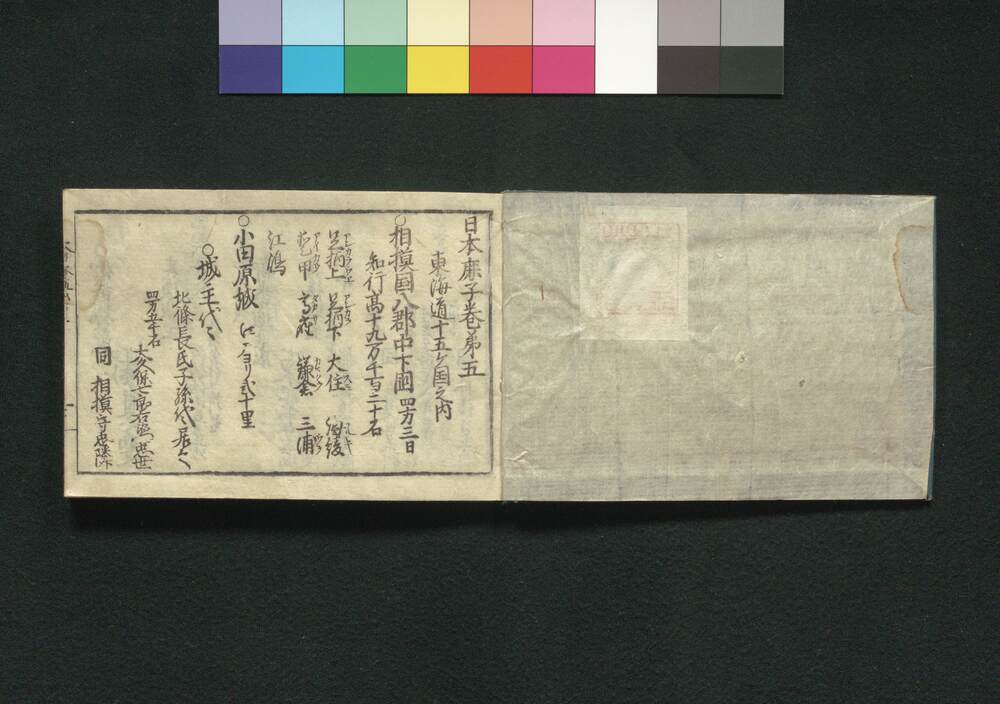 日本鹿子巻第五
東海道十五ケ国之内
○相摸国八郡中下國 四方三日
知行高十九万千百二十石
足柄上 足柄下 大住 淘綾
愛甲 高座 鎌倉 三浦
江嶋
○小田原城 江ヨリ弐十里
○城主代々
北條長氏子孫代々居之
四万五千石
大久保七郎右衛門忠世
同 相摸守忠隣